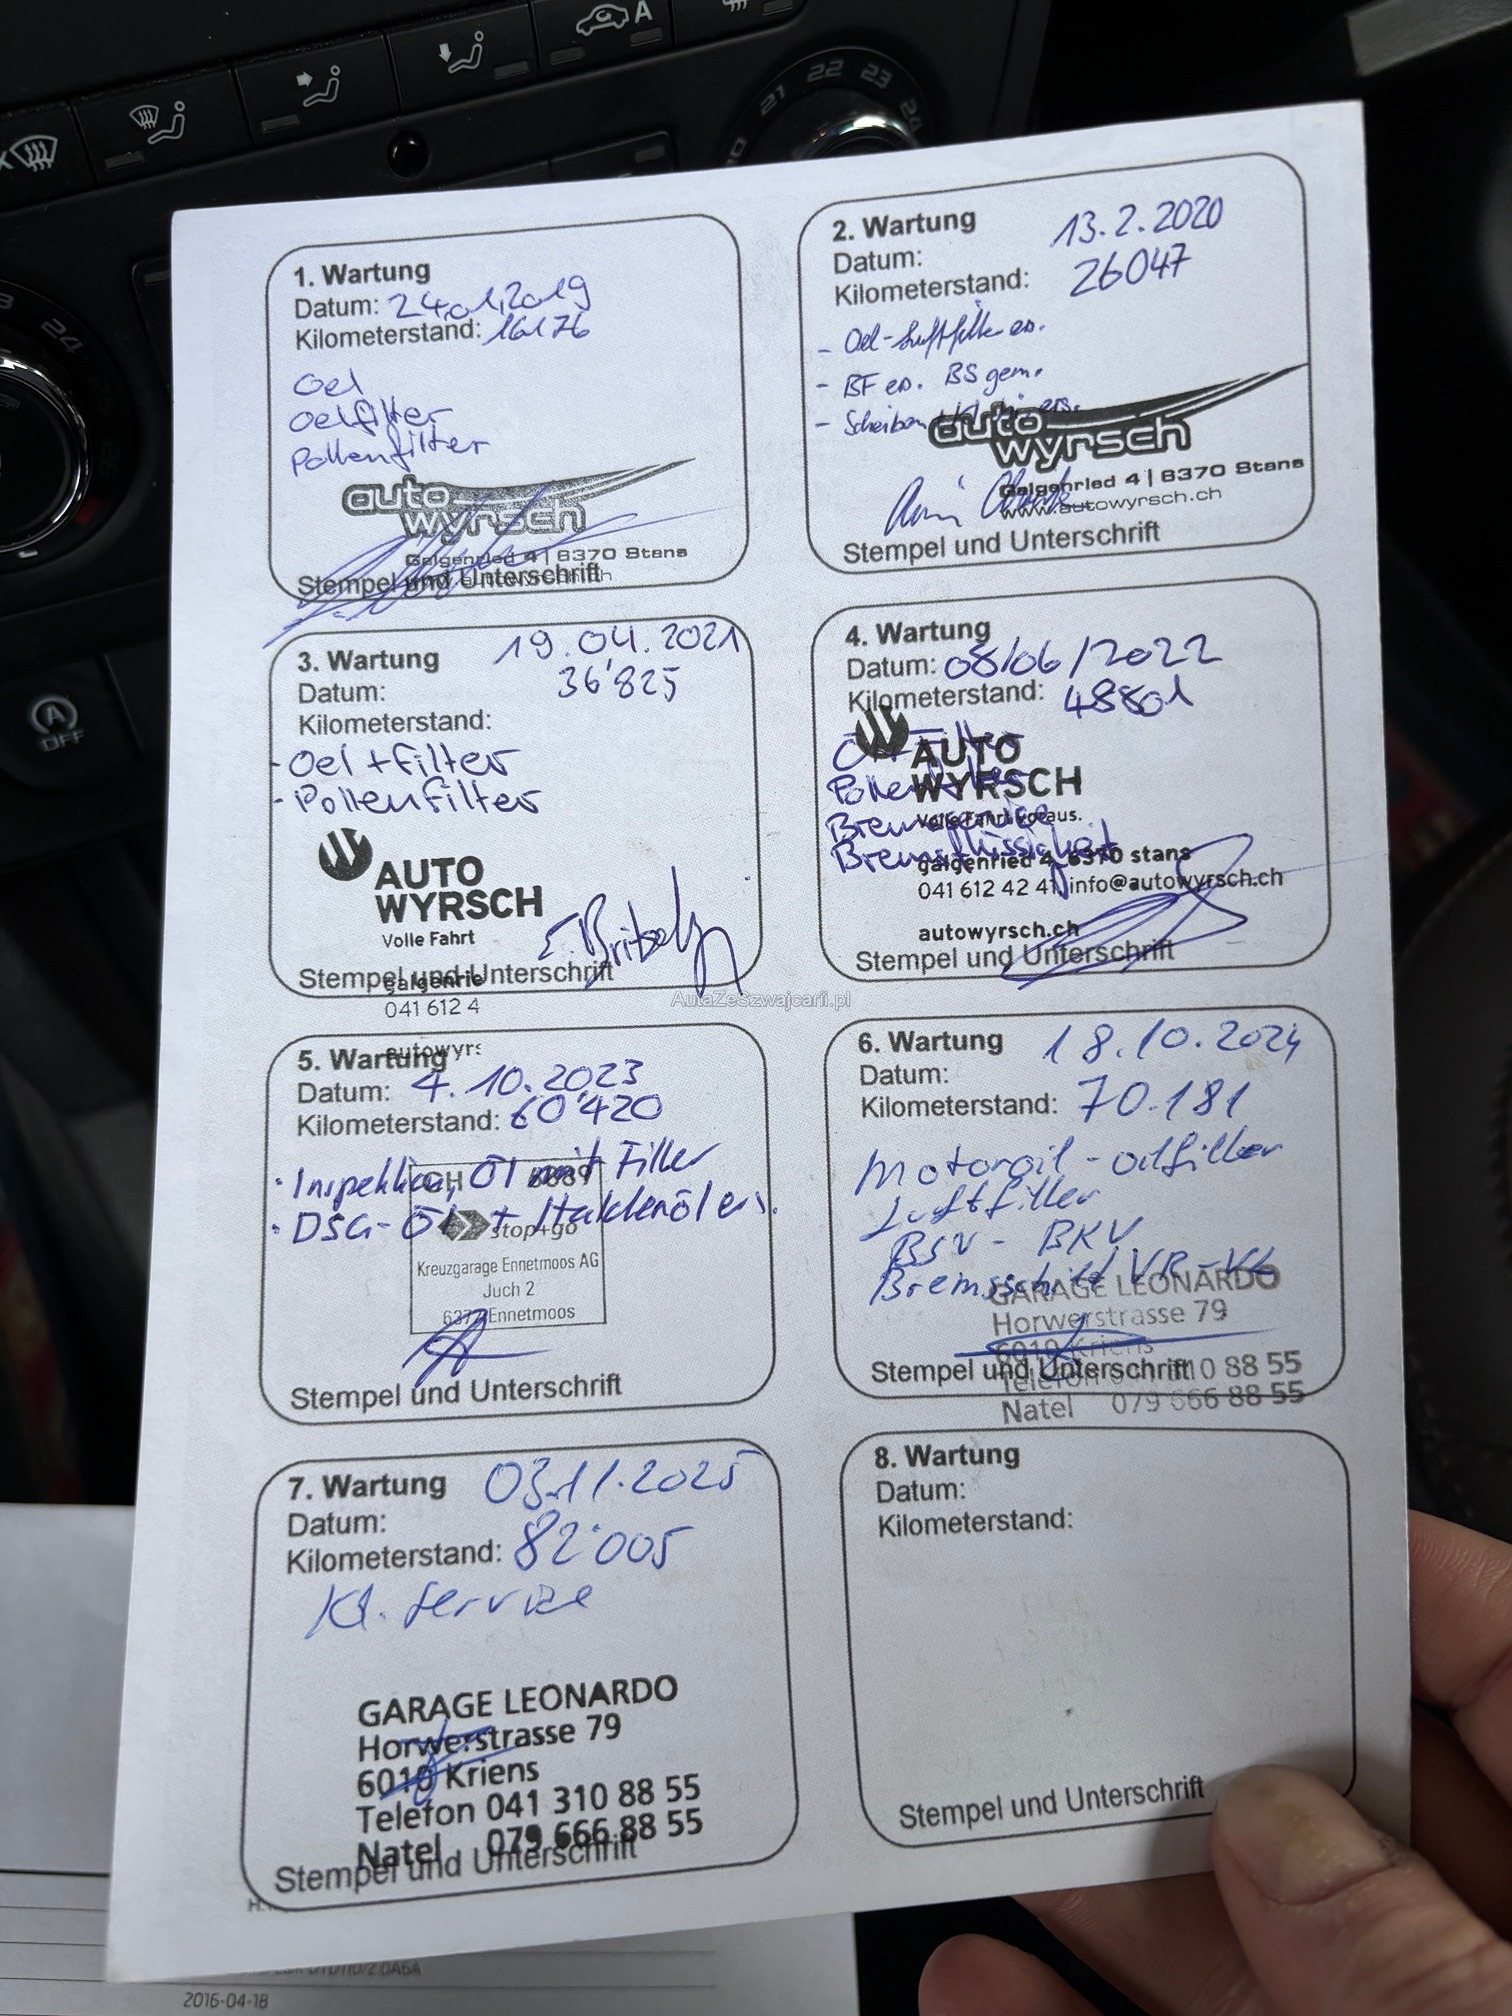 A
22 23
21
24
20
24
26
A
OFF
1. Wartung
Datum: 24.01.2019
Kilometerstand: 16176
Oel
Oelfilter
Pollenfilter
auto
wyrsch
Galgenried 4 | 6370 Stans
Stempel und Unterschrift
2. Wartung 13.2.2020
Datum:
Kilometerstand: 26047
- Oel-Luftfilter es.
- BF es. BS gem.
- Scheiben
auto
wyrsch
Galgenried 4 | 6370 Stans
www.autowyrsch.ch
Stempel und Unterschrift
3. Wartung 19.04.2021
Datum: 36'825
Kilometerstand:
- Oel + Filter
- Pollenfilter
AUTO
WYRSCH
Volle Fahrt
Stempel und Unterschrift
galgenrie
041 612 4
autowyrs
4. Wartung
Datum: 08/06/2022
Kilometerstand: 48801
AUTO
WYRSCH
Volle Fahrt voraus.
Bremsflüssigkeit
galgenried 4, 6370 stans
041 612 42 41, info@autowyrsch.ch
autowyrsch.ch
Stempel und Unterschrift
AutaZeSzwajcarii.pl
5. Wartung
Datum: 4.10.2023
Kilometerstand: 60'420
· Inspektion, Öl mit Filter
· DSG-Öl + Haldenöl ers.
CH
stop+go
Kreuzgarage Ennetmoos AG
Juch 2
6372 Ennetmoos
Stempel und Unterschrift
6. Wartung 18.10.2024
Datum:
Kilometerstand: 70.181
Motoroil - oilfilter
Luftfilter
BSV - BKV
Bremsschild VR-VL
GARAGE LEONARDO
Horwerstrasse 79
6010 Kriens
Stempel und Unterschrift
Telefon 041 310 88 55
Natel 079 666 88 55
7. Wartung 03.11.2025
Datum:
Kilometerstand: 82'005
Kl. Service
GARAGE LEONARDO
Horwerstrasse 79
6010 Kriens
Telefon 041 310 88 55
Natel 079 666 88 55
Stempel und Unterschrift
8. Wartung
Datum:
Kilometerstand:
Stempel und Unterschrift
2016-04-18